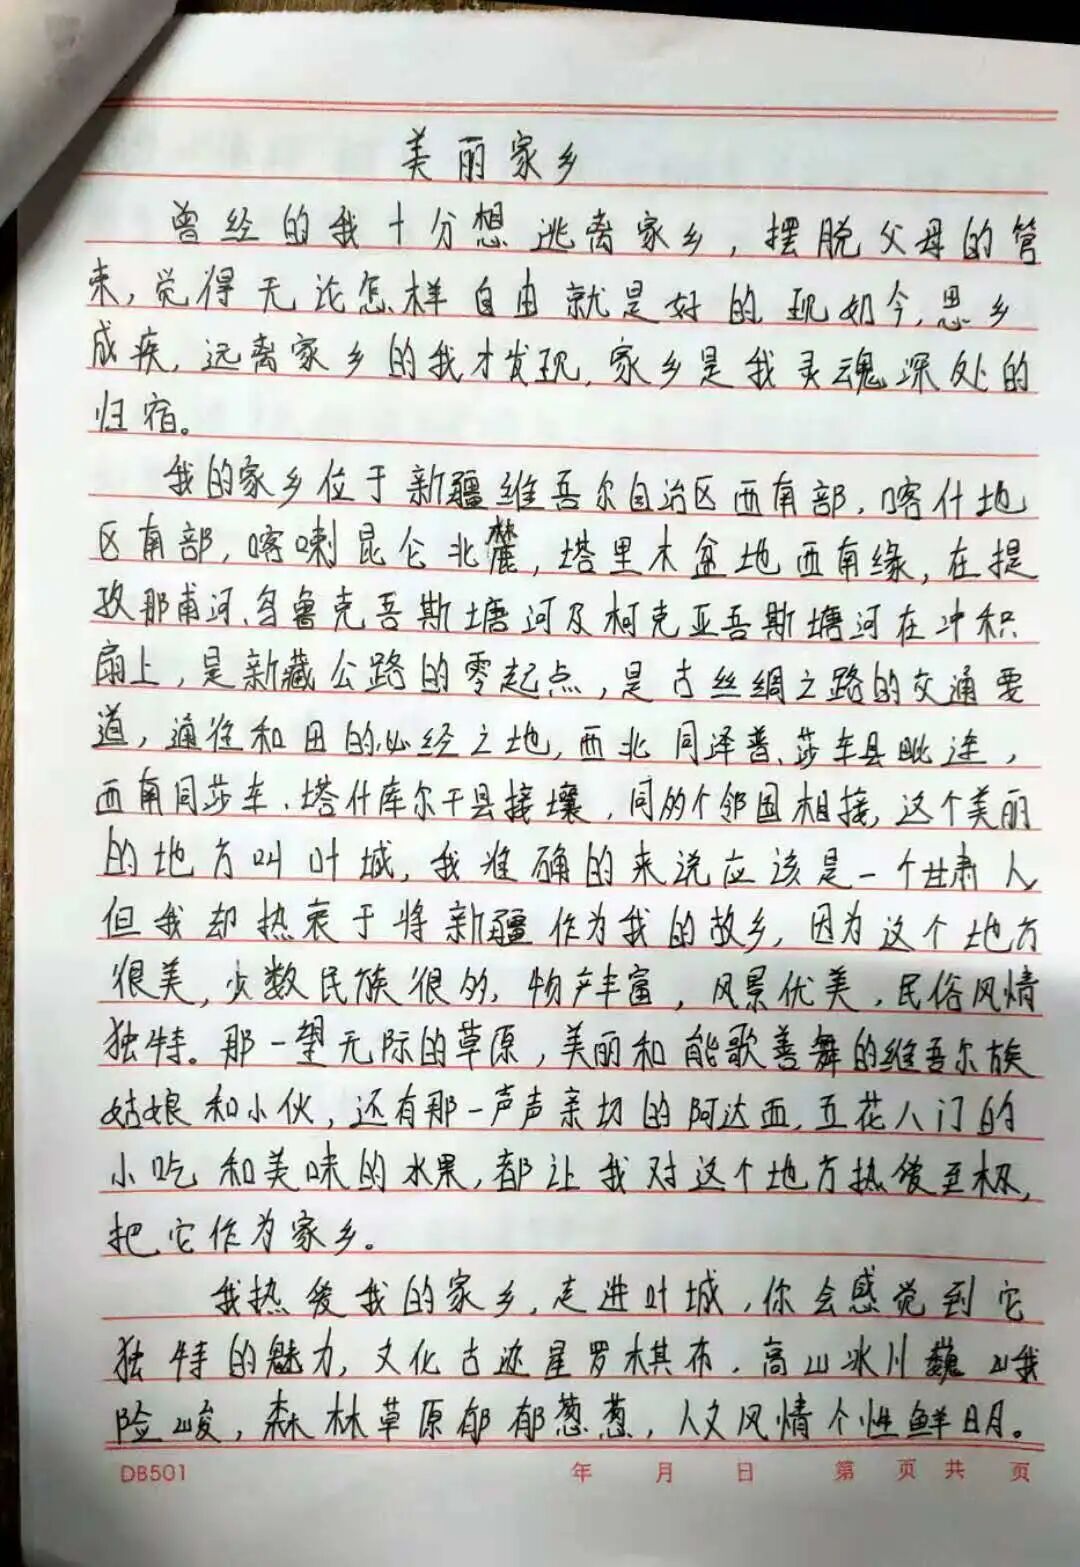 美丽家乡
曾经的我十分想逃离家乡，摆脱父母的管
束，觉得无论怎样自由就是好的，现如今，思乡
成疾，远离家乡的我才发现，家乡是我灵魂深处的
归宿。
我的家乡位于新疆维吾尔自治区西南部，喀什地
区南部，喀喇昆仑北麓，塔里木盆地西南缘，在提
孜那甫河、乌鲁克吾斯塘河及柯克亚吾斯塘河在冲积
扇上，是新藏公路的零起点，是古丝绸之路的交通要
道，通往和田的必经之地，西北同泽普、莎车县毗连，
西南同莎车、塔什库尔干县接壤，同多个邻国相接，这个美丽
的地方叫叶城，我准确的来说应该是一个甘肃人
但我却热衷于将新疆作为我的故乡，因为这个地方
很美，少数民族很多，物产丰富，风景优美，民俗风情
独特。那一望无际的草原，美丽和能歌善舞的维吾尔族
姑娘和小伙，还有那一声声亲切的阿达西，五花八门的
小吃和美味的水果，都让我对这个地方热爱至极，
把它作为家乡。
我热爱我的家乡，走进叶城，你会感觉到它
独特的魅力，文化古迹星罗棋布，高山冰川巍峨
险峻，森林草原郁郁葱葱，人文风情个性鲜明。
DB501 年 月 日 第 页 共 页